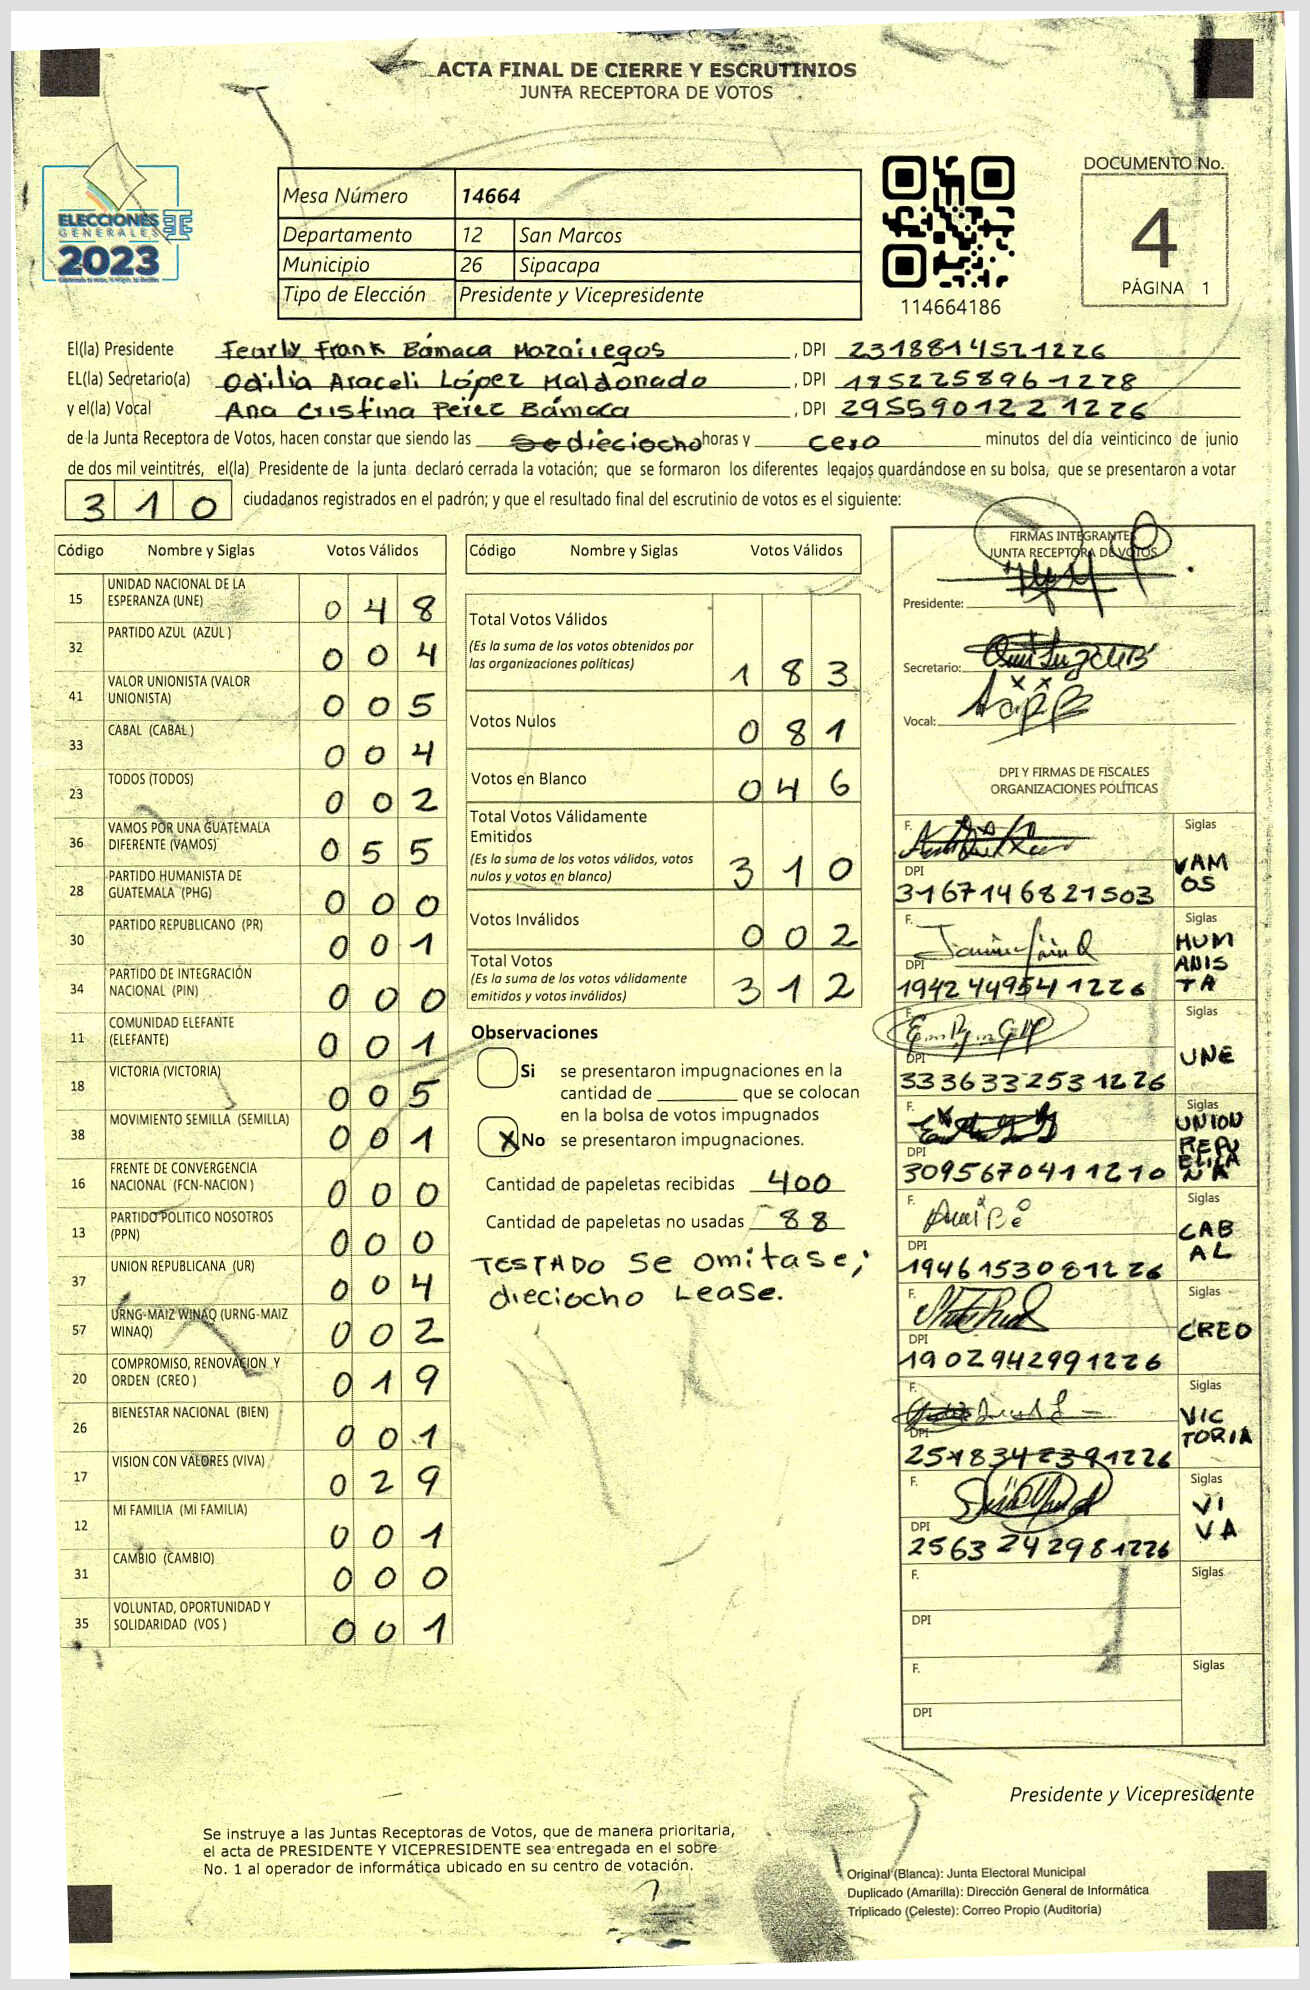 ACTA FINAL DE CIERRE Y ESCRUTINIOS
JUNTA RECEPTORA DE VOTOS
ELECCIONES
GENERALES
2023
Mesa Número 14664
Departamento 12 San Marcos
Municipio 26 Sipacapa
Tipo de Elección Presidente y Vicepresidente
114664186
DOCUMENTO No.
4
PÁGINA 1
El(la) Presidente Fearly Frank Bámaca Mazariegos , DPI 2318814521226
EL(la) Secretario(a) Odilia Araceli López Maldonado , DPI 1852258961228
y el(la) Vocal Ana Cristina Pérez Bámaca , DPI 2955901221226
de la Junta Receptora de Votos, hacen constar que siendo las Se dieciocho horas y cero minutos del día veinticinco de junio
de dos mil veintitrés, el(la) Presidente de la junta declaró cerrada la votación; que se formaron los diferentes legajos guardándose en su bolsa, que se presentaron a votar
310 ciudadanos registrados en el padrón; y que el resultado final del escrutinio de votos es el siguiente:
Código Nombre y Siglas Votos Válidos
15 UNIDAD NACIONAL DE LA ESPERANZA (UNE) 048
32 PARTIDO AZUL (AZUL ) 004
41 VALOR UNIONISTA (VALOR UNIONISTA) 005
33 CABAL (CABAL ) 004
23 TODOS (TODOS) 002
36 VAMOS POR UNA GUATEMALA DIFERENTE (VAMOS) 055
28 PARTIDO HUMANISTA DE GUATEMALA (PHG) 000
30 PARTIDO REPUBLICANO (PR) 001
34 PARTIDO DE INTEGRACIÓN NACIONAL (PIN) 000
11 COMUNIDAD ELEFANTE (ELEFANTE) 001
18 VICTORIA (VICTORIA) 005
38 MOVIMIENTO SEMILLA (SEMILLA) 001
16 FRENTE DE CONVERGENCIA NACIONAL (FCN-NACION ) 000
13 PARTIDO POLITICO NOSOTROS (PPN) 000
37 UNION REPUBLICANA (UR) 004
57 URNG-MAIZ WINAQ (URNG-MAIZ WINAQ) 002
20 COMPROMISO, RENOVACION Y ORDEN (CREO ) 019
26 BIENESTAR NACIONAL (BIEN) 001
17 VISION CON VALORES (VIVA) 029
12 MI FAMILIA (MI FAMILIA) 001
31 CAMBIO (CAMBIO) 000
35 VOLUNTAD, OPORTUNIDAD Y SOLIDARIDAD (VOS ) 001
Código Nombre y Siglas Votos Válidos
Total Votos Válidos 183
(Es la suma de los votos obtenidos por
las organizaciones políticas)
Votos Nulos 081
Votos en Blanco 046
Total Votos Válidamente
Emitidos 310
(Es la suma de los votos válidos, votos
nulos y votos en blanco)
Votos Inválidos 002
Total Votos 312
(Es la suma de los votos válidamente
emitidos y votos inválidos)
Observaciones
Si se presentaron impugnaciones en la
cantidad de ________ que se colocan
en la bolsa de votos impugnados
X No se presentaron impugnaciones.
Cantidad de papeletas recibidas 400
Cantidad de papeletas no usadas 88
TESTADO Se omitase;
dieciocho Lease.
FIRMAS INTEGRANTES
JUNTA RECEPTORA DE VOTOS
Presidente:
Secretario:
Vocal:
DPI Y FIRMAS DE FISCALES
ORGANIZACIONES POLÍTICAS
F. Siglas
VAMOS
DPI
3167146821503
F. Siglas
HUMANISTA
DPI
1942449541226
F. Siglas
UNE
DPI
3336332531226
F. Siglas
UNION REPUBLICANA
DPI
3095670411210
F. Siglas
CABAL
DPI
1946153081226
F. Siglas
CREO
DPI
1902942991226
F. Siglas
VICTORIA
DPI
2518342391226
F. Siglas
VIVA
DPI
2563242981226
F. Siglas
DPI
F. Siglas
DPI
Presidente y Vicepresidente
Se instruye a las Juntas Receptoras de Votos, que de manera prioritaria,
el acta de PRESIDENTE Y VICEPRESIDENTE sea entregada en el sobre
No. 1 al operador de informática ubicado en su centro de votación.
Original (Blanca): Junta Electoral Municipal
Duplicado (Amarilla): Dirección General de Informática
Triplicado (Celeste): Correo Propio (Auditoría)